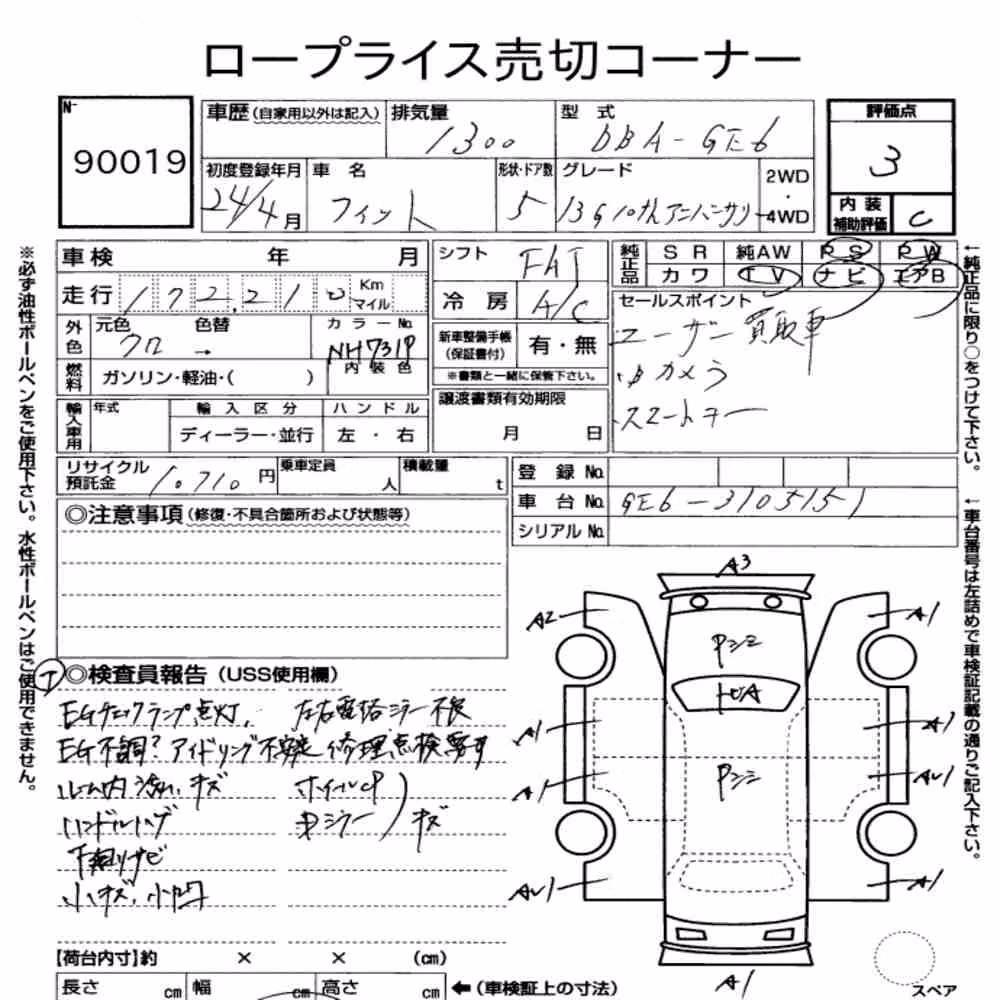 ロープライス売切コーナー
No. 90019
車歴(自家用以外は記入) 排気量 1300 型 式 DBA-GE6 評価点 3
初度登録年月 24/4月 車 名 フィット 形状・ドア数 5 グレード 2WD・4WD
内 装 補助評価 C
車検 年 月 シフト FAT 純正品 S R 純AW P S P W
走行 172,210 Km マイル 冷 房 A/C カワ T V ナビ エアB
外色 元色 クロ 色替 → カラーNo. NH731P 内 装 色
燃料 ガソリン・軽油・( )
新車整備手帳(保証書付) 有・無
※書類と一緒に保管下さい。
セールスポイント
ユーザー買取車
カメラ
スマートキー
輸入車用 年式 輸 入 区 分 ハ ン ド ル
ディーラー・並行 左 ・ 右
譲渡書類有効期限
月 日
リサイクル預託金 10,710 円 乗車定員 人 積載量 t
登 録 No.
車 台 No. GE6-3105151
シリアル No.
◎注意事項(修復・不具合箇所および状態等)
◎検査員報告(USS使用欄)
EGチェックランプ点灯、左右電格ミラー不良
EG不調?アイドリング不安定 修理点検要す
ルーム内 汚れ、キズ ホイールCP
ハンドルハゲ ミラー キズ
下廻りサビ
小キズ、小凹
A3
A2 A1
Pシミ
トビA
A1 A1
A1 AU1
Pシミ
AU1 A1
A1
【荷台内寸】約 × × (cm)
長さ cm 幅 cm 高さ cm ←(車検証上の寸法)
スペア
※必ず油性ボールペンをご使用下さい。水性ボールペンはご使用できません。
←純正品に限り○をつけて下さい。
←車台番号は左詰めで車検証記載の通りご記入下さい。